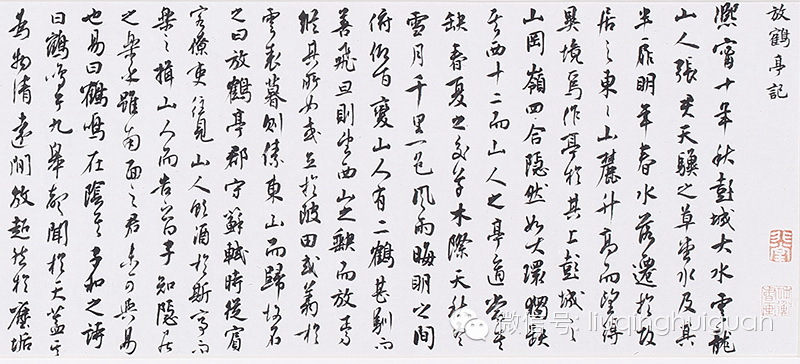 放鶴亭記
熙甯十年秋彭城大水雲龍
山人張君天驥之草堂水及其
半扉明年春水落遷於故
居之東々山麓升高而望得
異境焉作亭於其上彭城之
山岡嶺四合隱然如大環獨缺
其西十二而山人之亭適當其
缺春夏之交草木際天秋冬
雪月千里一色風雨晦明之間
俯仰百變山人有二鶴甚馴而
善飛旦則望西山之缺而放焉
縱其所如或立於陂田或翔於
雲表暮則傃東山而歸故名
之曰放鶴亭郡守蘇軾時從賓
客僚吏往見山人飲酒於斯亭而
樂之揖山人而告曰子知隱居
之樂乎雖南面之君未可與易
也易曰鶴鳴在陰其子和之詩
曰鶴鳴于九皋聲聞於天蓋其
為物清遠閒放超然於塵垢
微信号: liuqinghuiguan